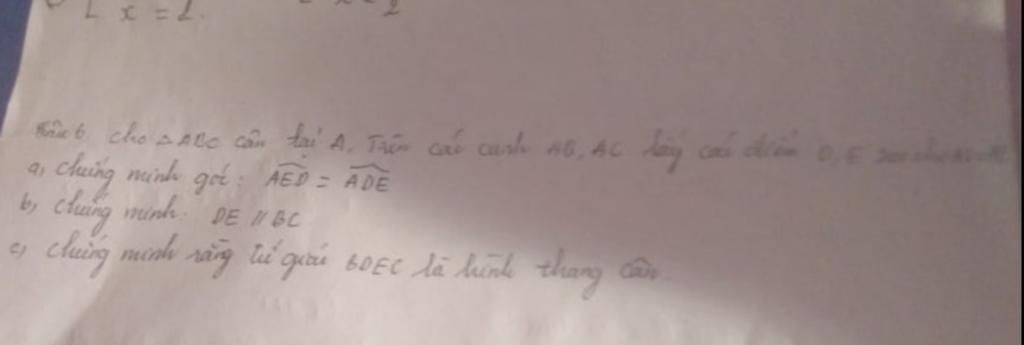 x = 2.
Câu 6. Cho △ABC cân tại A. Trên các cạnh AB, AC lấy các điểm D, E sao cho
a, chứng minh góc: AED = ADE
b, chứng minh. DE // BC
c, chứng minh rằng tứ giác BDEC là hình thang cân.